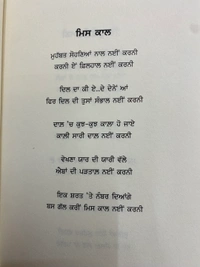 ਮਿਸ ਕਾਲ
ਮੁਹੱਬਤ ਸੋਹਣਿਆਂ ਨਾਲ ਨਈਂ ਕਰਨੀ
ਕਰਨੀ ਏਂ ਫ਼ਿਲਹਾਲ ਨਈਂ ਕਰਨੀ
ਦਿਲ ਦਾ ਕੀ ਏ..ਦੇ ਦੇਨੇਂ ਆਂ
ਫਿਰ ਦਿਲ ਦੀ ਤੁਸਾਂ ਸੰਭਾਲ ਨਈਂ ਕਰਨੀ
ਦਾਲ 'ਚ ਕੁਝ-ਕੁਝ ਕਾਲਾ ਹੋ ਜਾਏ
ਕਾਲੀ ਸਾਰੀ ਦਾਲ ਨਈਂ ਕਰਨੀ
ਵੇਖਣਾ ਯਾਰ ਦੀ ਯਾਰੀ ਵੱਲੇ
ਐਬਾਂ ਦੀ ਪੜਤਾਲ ਨਈਂ ਕਰਨੀ
ਇਕ ਸ਼ਰਤ 'ਤੇ ਨੰਬਰ ਦਿਆਂਗੇ
ਬਸ ਗੱਲ ਕਰੀਂ ਮਿਸ ਕਾਲ ਨਈਂ ਕਰਨੀ